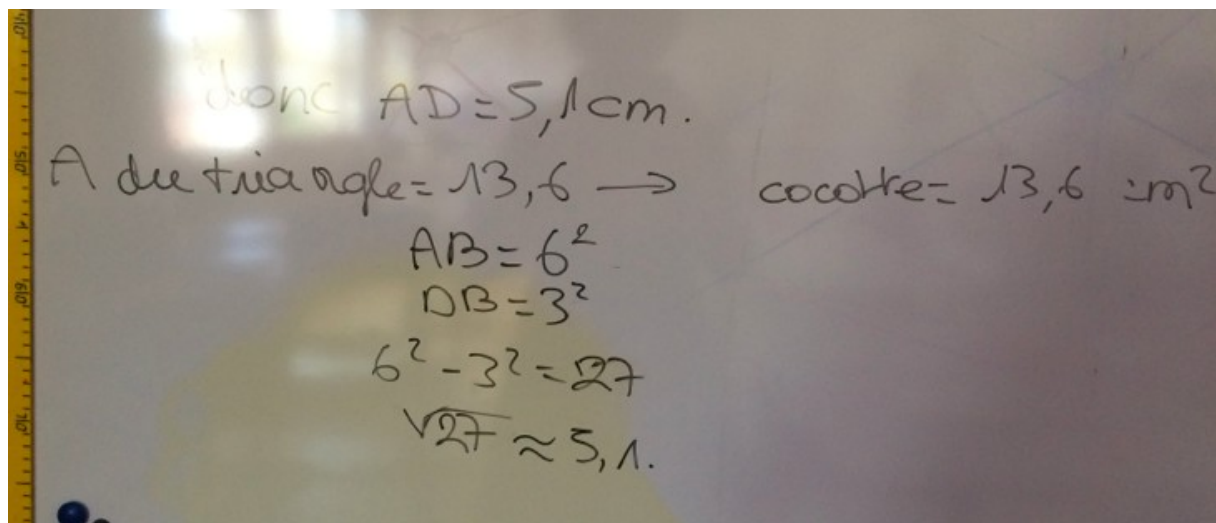 donc AD = 5,1 cm.
A du triangle = 13,6 → cocotte = 13,6 cm²
AB = 6²
DB = 3²
6² - 3² = 27
√27 ≈ 5,1.